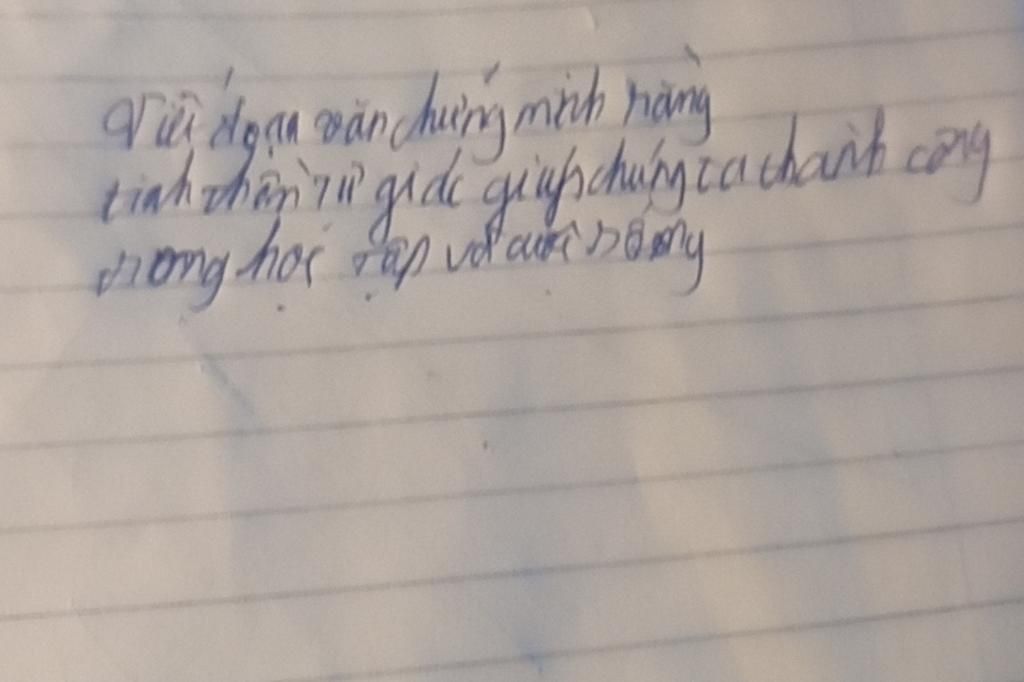 Viết đoạn văn chứng minh rằng
tinh thần tự giác giúp chúng ta thành công
trong học tập và cuộc sống